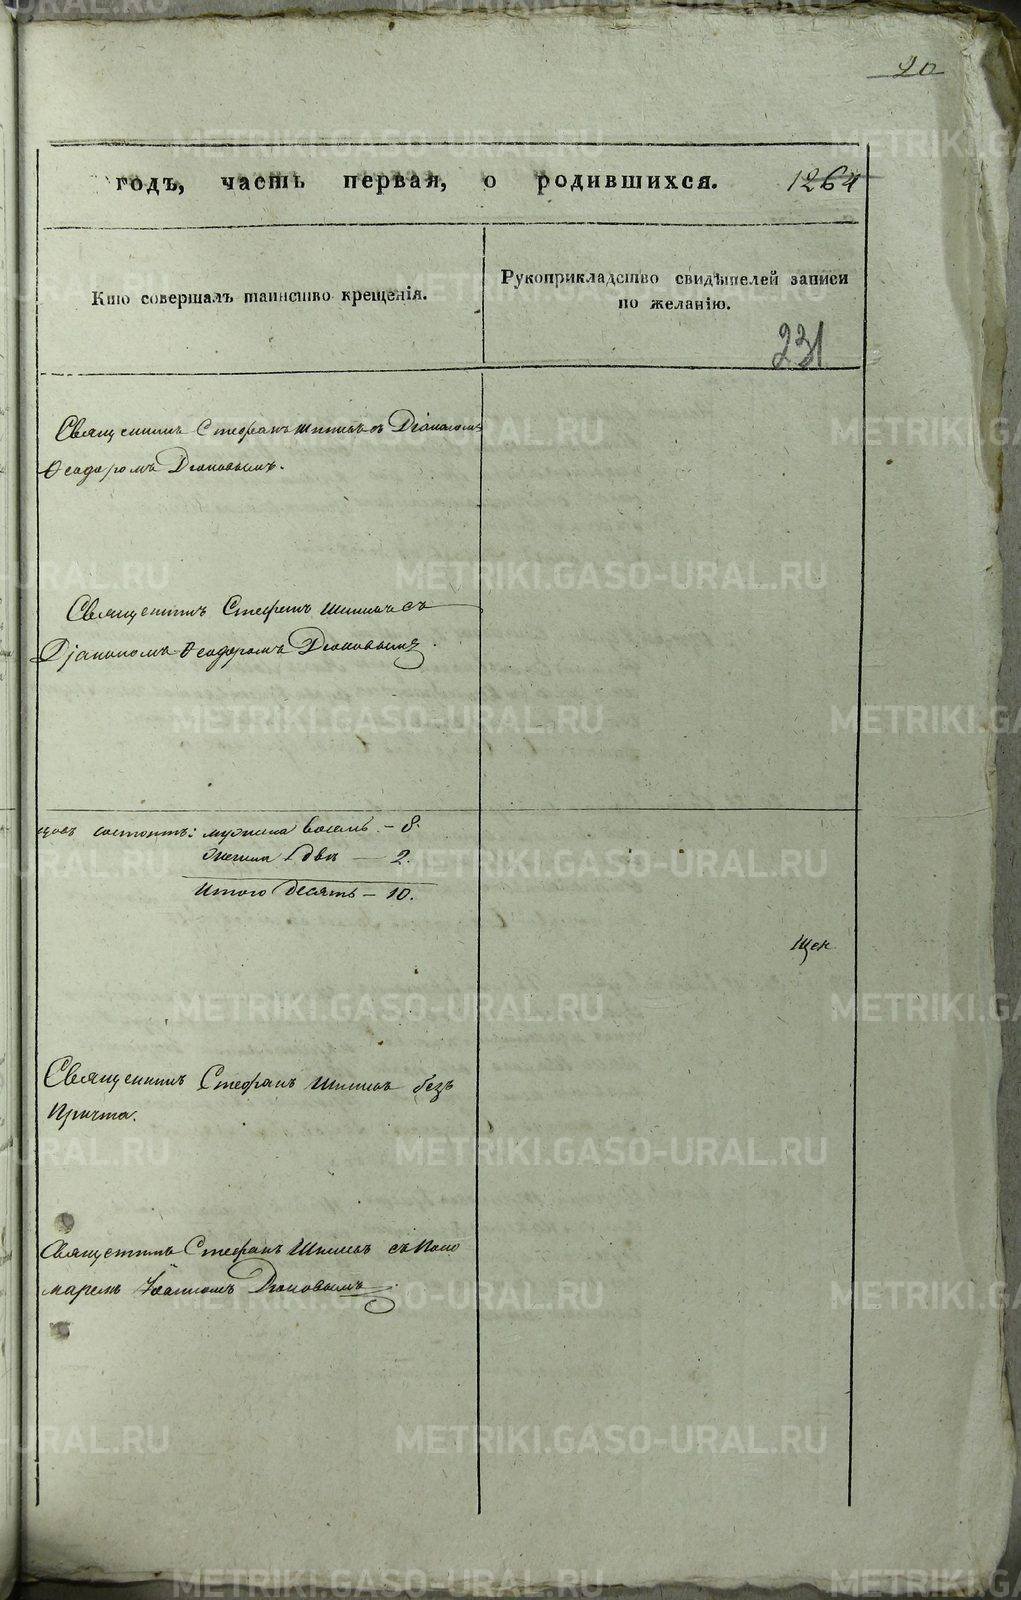 20
годъ, часть первая, о родившихся. 1264
Кто совершалъ таинство крещенія.
Рукоприкладство свидѣтелей записи
по желанію.
231
Священникъ Стефанъ съ Діакономъ
Ѳеодоромъ Дьяковымъ.
Священникъ Стефанъ съ
Діакономъ Ѳеодоромъ Дьяковымъ.
состоитъ: мужеска восемь - 8.
женска двѣ — 2.
Итого десять - 10.
Щек
Священникъ Стефанъ безъ
Причта.
Священникъ Стефанъ съ Поно
маремъ Іоанномъ Дьяковымъ.
METRIKI.GASO-URAL.RU